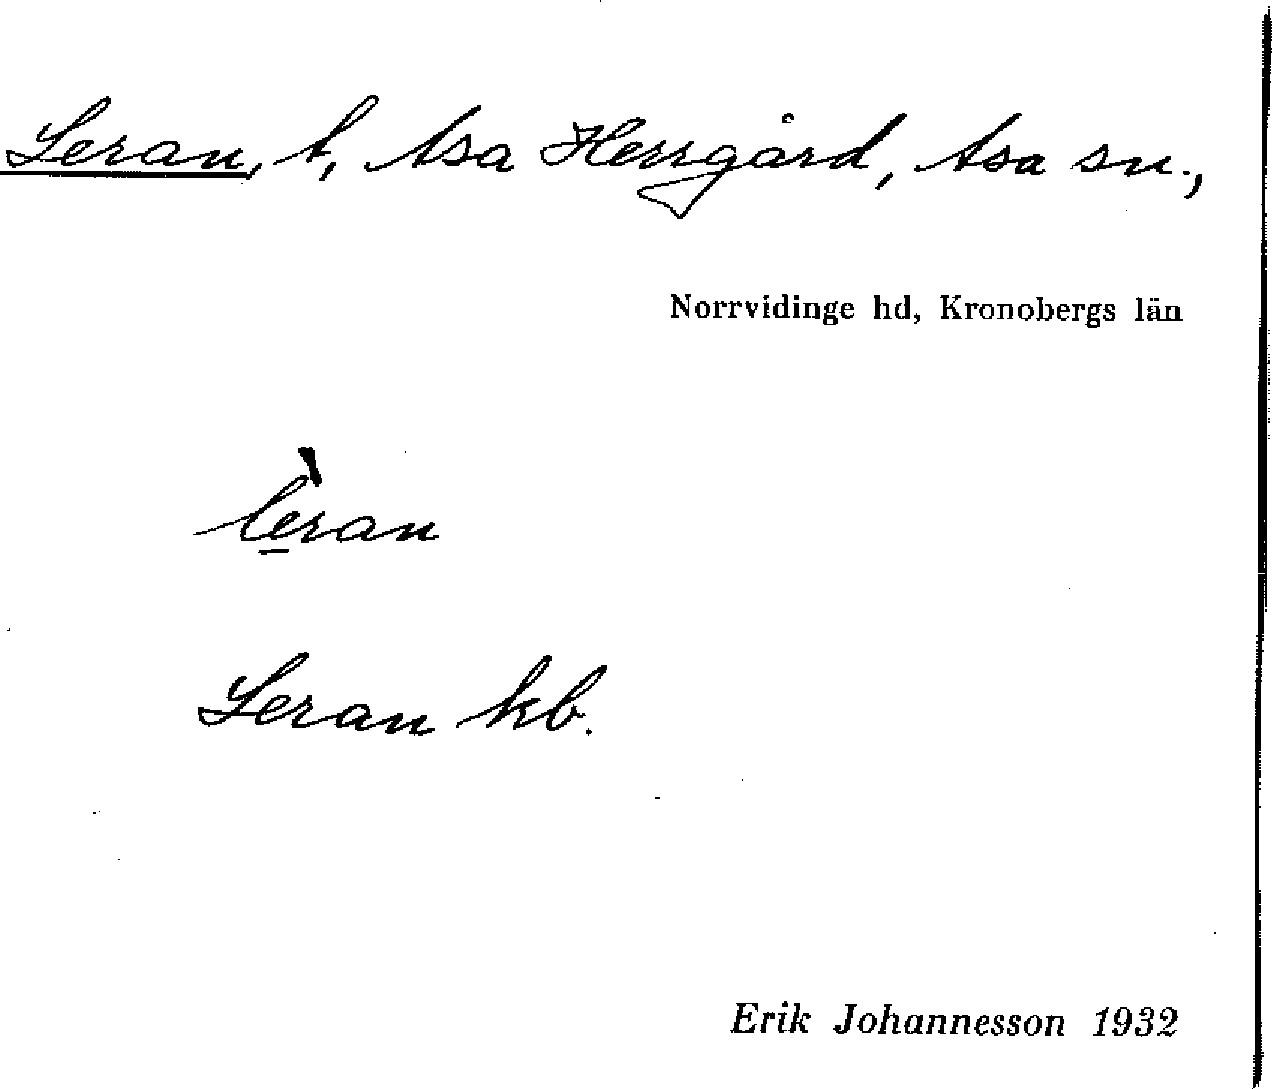 Leran, t, Asa Herrgård, Asa sn.,
Norrvidinge hd, Kronobergs län
lèran
Leran kb.
Erik Johannesson 1932